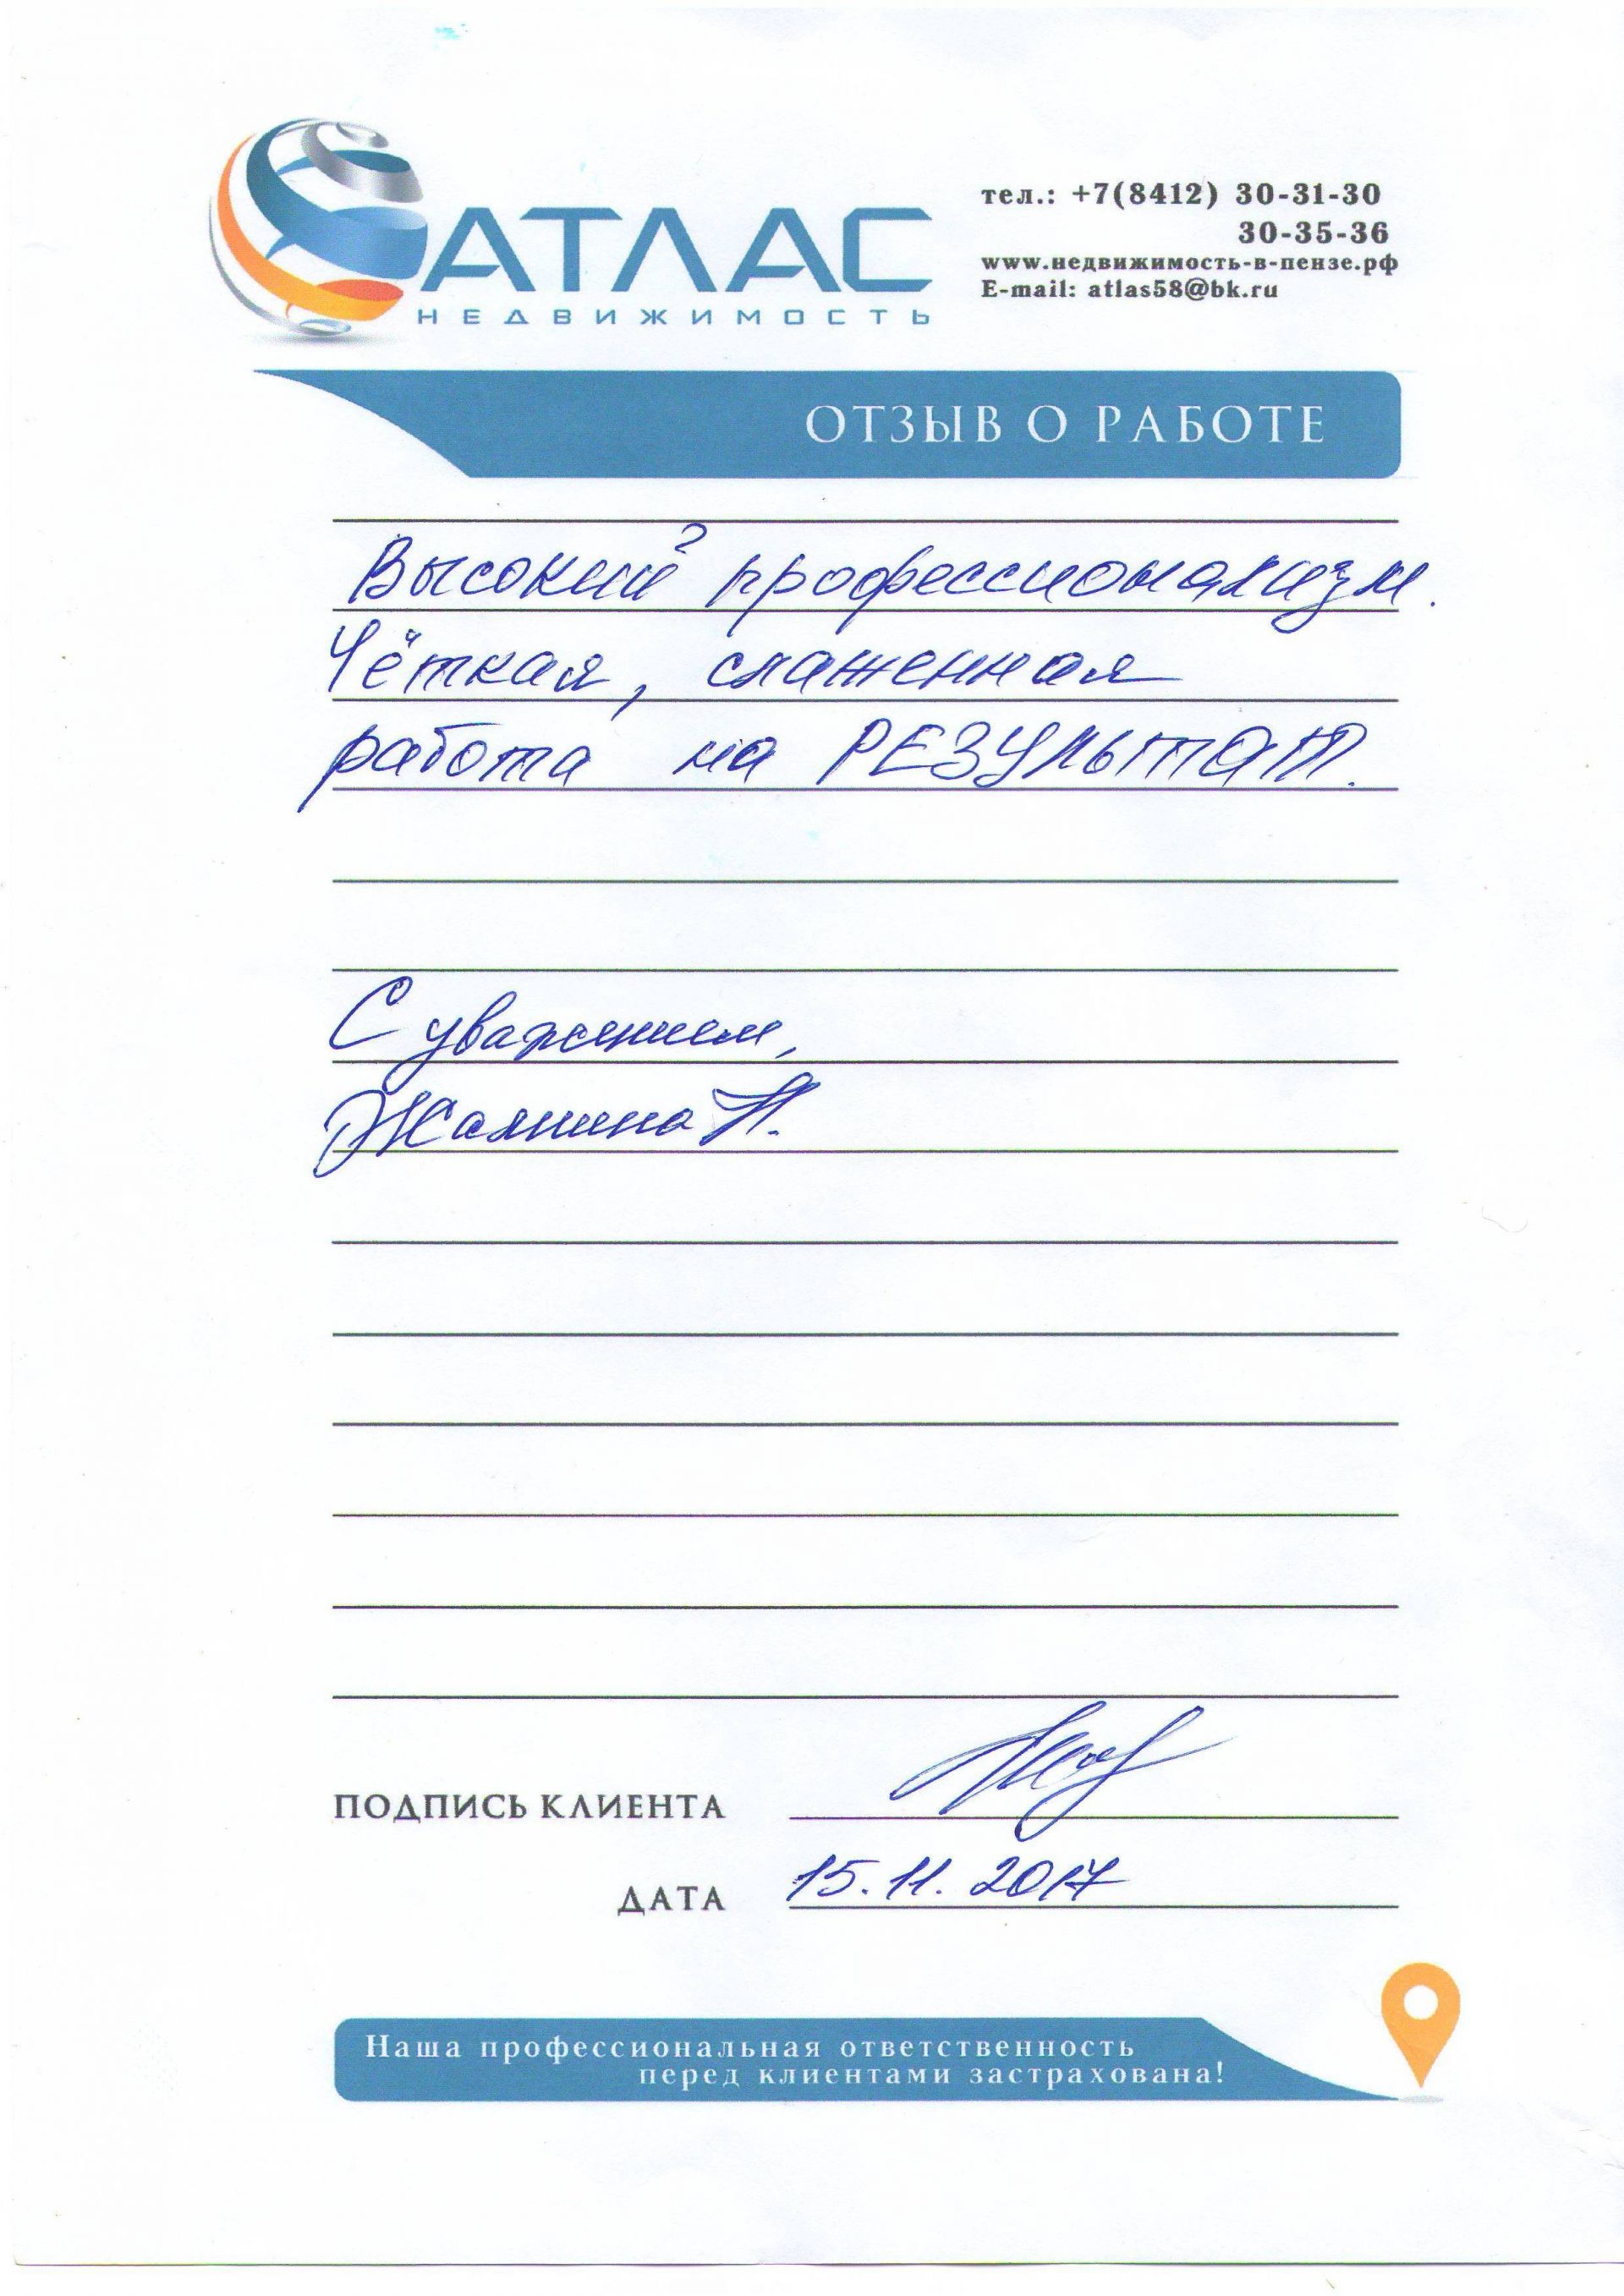 АТЛАС
НЕДВИЖИМОСТЬ
тел.: +7(8412) 30-31-30
30-35-36
www.недвижимость-в-пензе.рф
E-mail: atlas58@bk.ru
ОТЗЫВ О РАБОТЕ
Высокий профессионализм.
Чёткая, слаженная
работа на РЕЗУЛЬТАТ.
С уважением,
ПОДПИСЬ КЛИЕНТА
ДАТА 15.11.2017
Наша профессиональная ответственность
перед клиентами застрахована!